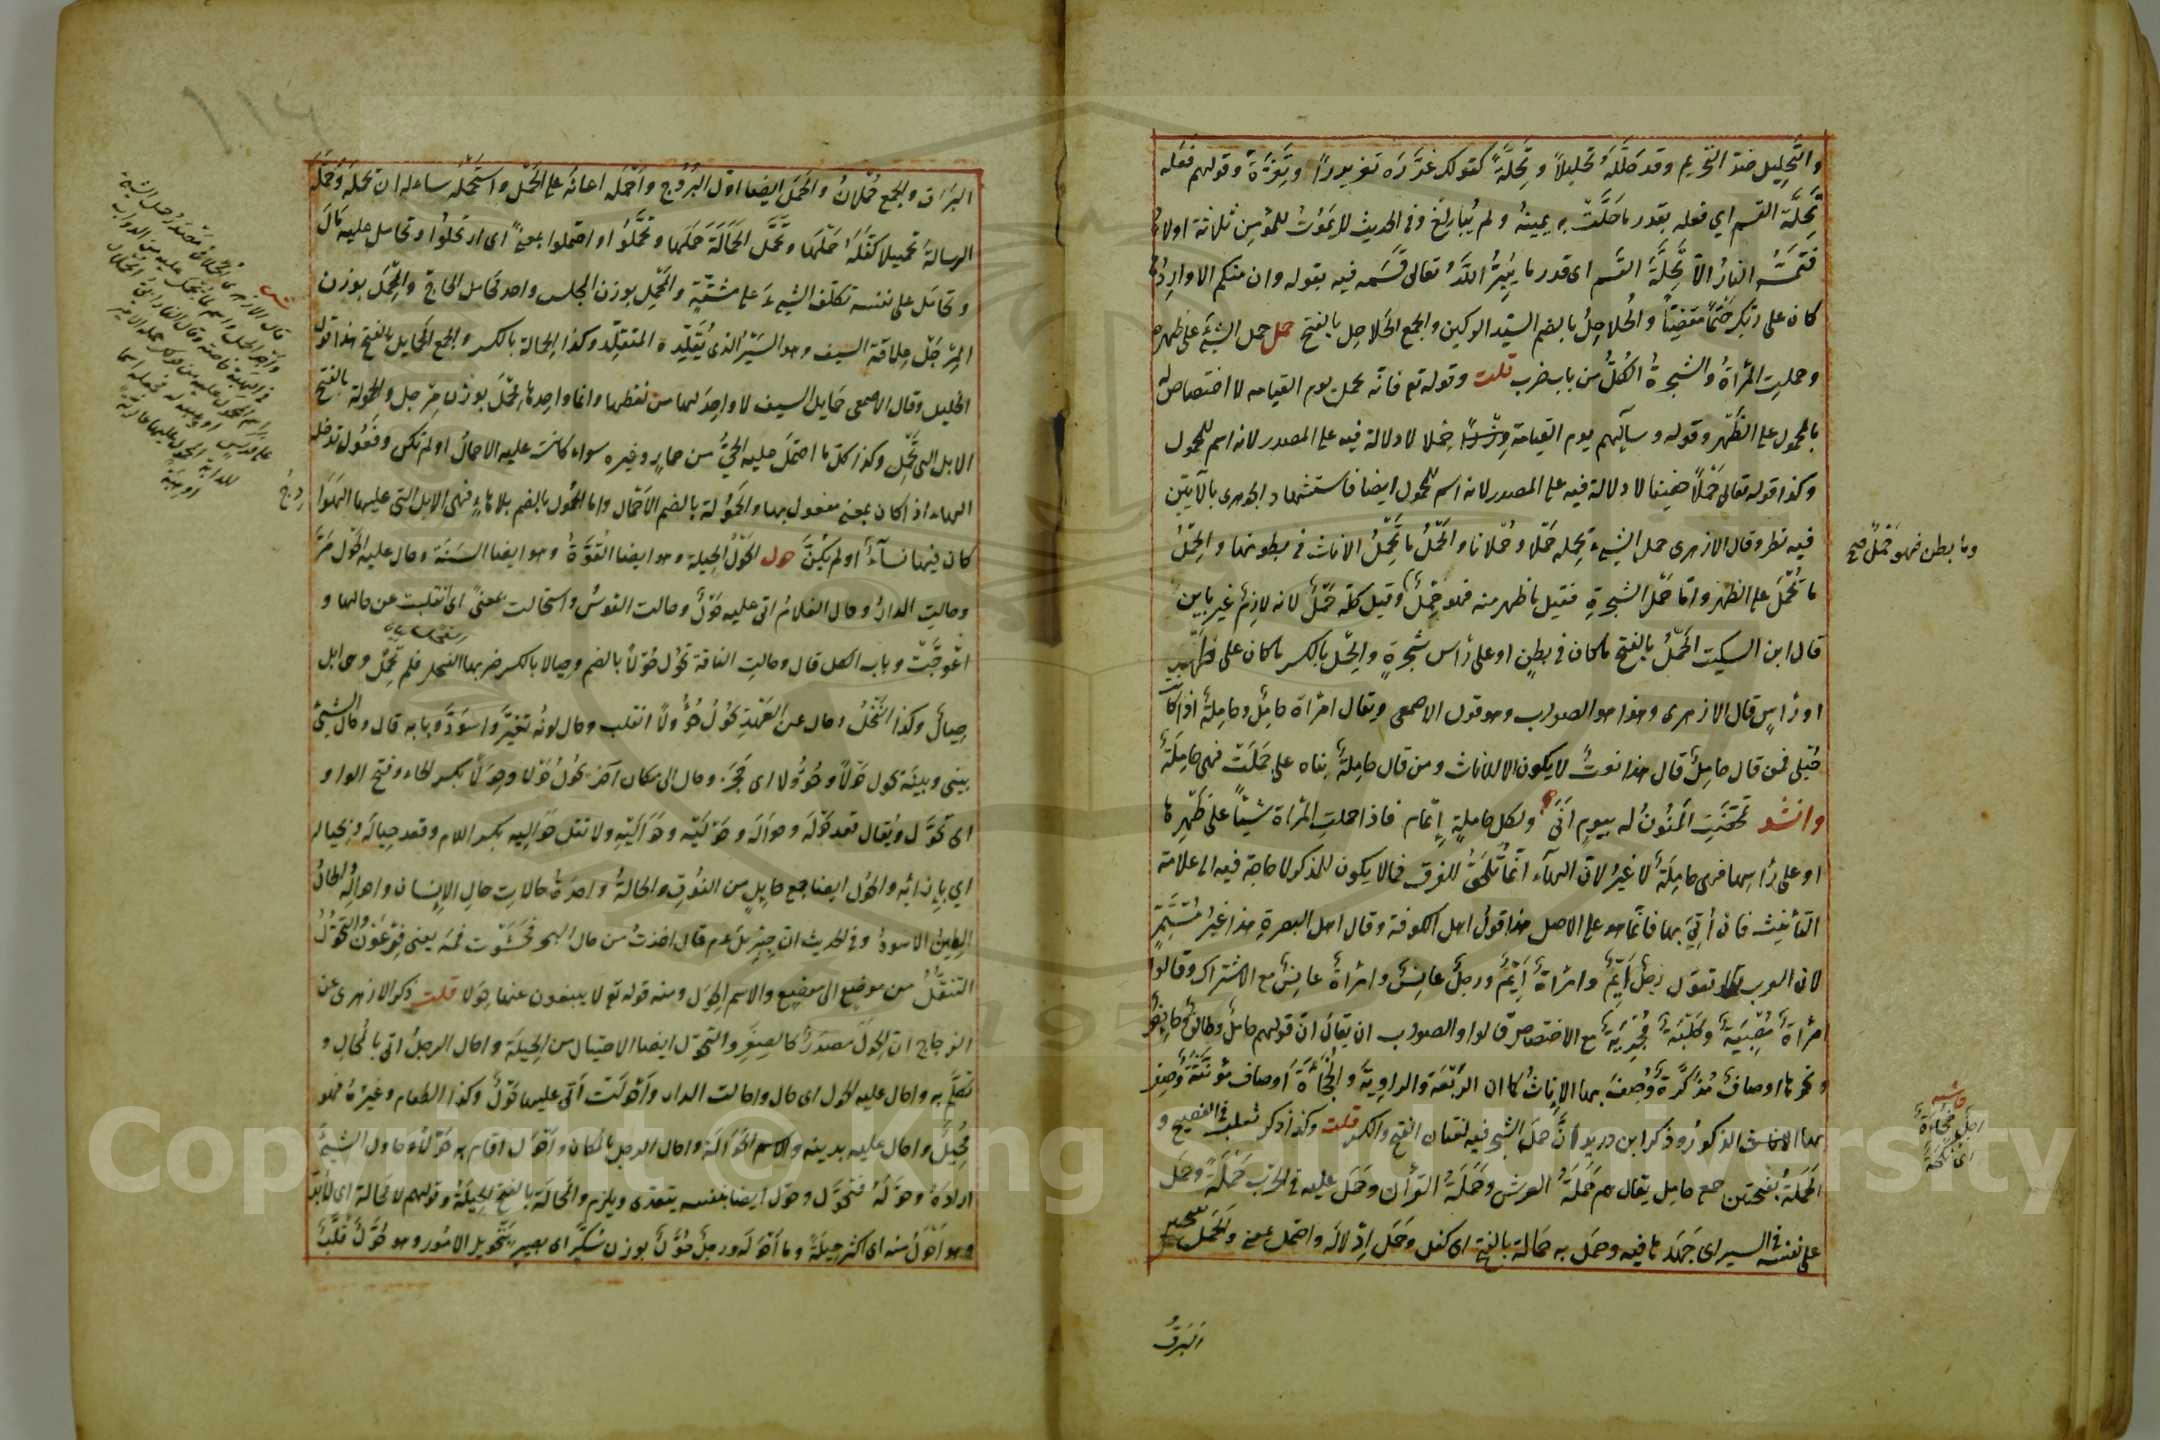 والتَّحليل ضدّ التحريم وقد حَلَّلَهُ تحليلاً وتَحِلَّةً كقولك غرَّرَه تغريراً وتَغِرَّةً وقولهم فعله
تَحِلَّةَ القسم اي فعله بقدر ما حَلَّتْ به يمينهُ ولم يُبالِغ وفي الحديث لا يموتُ للمؤمن ثلاثة اولاد
فَتَمَسَّهُ النارُ الّا تَحِلَّةَ القسم اى قدر ما يُبِرُّ اللّهُ تعالى قَسَمه فيه بقوله وان منكم الا واردها
كان على ربّك حَتْماً مَقضِيّاً والحُلاحِلُ بالضم السيّد الركين والجمع الحَلاحِل بالفتح حمل حمل الشيء على ظهره
وحملت المرأةُ والشجرةُ الكُلُّ من باب ضرب قلت وقوله تع فانّه يحمل يوم القيامه لا اختصاص له
بالمحمول على الظَّهر وقوله وساء لهم يوم القيامة حِملا لا دلالة فيه على المصدر لانه اسم للمحمول
وكذا قوله تعالى حَمْلاً خفيفا لا دلالة فيه على المصدر لانه اسم للمحمول ايضا فاستشهاد الجوهرى بالآيتين
فيه نظر وقال الازهرى حمل الشيء يحمله حَمْلا وحُمْلانا والحَمْلُ ما تَحمِلُ الاناث فى بطونها والحِمْلُ
ما يُحْمَل على الظهر وامّا حمل الشجرةِ فقيل ما ظهر منه فهو حِمْلٌ وقيل كلّه حَمْلٌ لانه لازمٌ غير باين
قال ابن السكيت الحَمْلُ بالفتح ما كان فى بطنٍ او على رأس شجرةٍ والحِمْل بالكسر ما كان على ظَهرٍ
او رأسٍ قال الازهرى وهذا هو الصواب وهو قول الاصمعى ويقال امرأة حامِلٌ وحامِلةٌ اذا كانت
حُبْلى فمن قال حامِلٌ قال هذا نعتٌ لا يكون الا للاناث ومن قال حامِلةٌ بناه على حَمَلَتْ فهى حامِلَةٌ
وانشد تمخّضتِ المَنُونُ له بيومٍ اَنَى ولكلِّ حاملةٍ تِمام فاذا حملت المرأة شيئاً على ظَهرها
او على رأسها فهى حامِلَةٌ لا غيرُ لانّ الهاء انّما تُلحَقُ للفرق فما لا يكون للمذكر لا حاجة فيه الى علامة
التأنيث فان اُتِىَ بها فانّما هو على الاصل هذا قول اهل الكوفة وقال اهل البصرة هذا غيرُ مُسْتَمِرٍّ
لان العرب تقول رجلٌ اَيِّمٌ وامرأةٌ اَيِّمٌ ورجلٌ عانِسٌ وامرأةٌ عانِسٌ مع الاشتراك وقالوا
امرأةٌ مُصْبِيَةٌ وكَلْبَةٌ مُجْرِيَةٌ مع الاختصاص قالوا والصواب ان يقال انّ قولهم حاملٌ وطالقٌ وحائضٌ
ونحوها اوصافٌ مُذَكَّرةٌ وُصِفَ بها الاِناثُ كما ان الرَّبْعَة والراوِيةَ والخُجَأَةَ اوصافٌ مُؤنَّثَةٌ وُصِف
بها الذكورُ وذكر ابن دريد انَّ حمل الشجر فيه لغتان الفتح والكسر قلت وكذا ذكر ثعلب فى الفصيح و
الحَمَلَةُ بفتحتين جمع حامِل يقال هم حَمَلَةُ العرش وحَمَلَةُ القرآن وحَمَل عليه فى الحرْب حَمْلَةً وحَمَل
على نفسه فى السير اى جَهَدها فيه وحَمَل به حَمالة بالفتح اى كفل وحَمَل اِدْلالَه واحتمل بمعنى والحَمَل
وما بطن فهو حَمْلٌ صح
حاشيه
البَرَقُ
البَرَق والجمع حُمْلانٌ والحَمَل ايضا اوّل البُرُوج واَحْمَله اعانه على الحَمْل واسْتَحْمَله ساءله ان يحمله وحَمَّله
الرسالةَ تحميلا كَلَّفَهُ حَمْلَها وتحمّل الحَمَالَةَ حَمَلَها وتحمَّلُوا واحتملوا بمعنىً اى ارتحلُوا وتحامل عليه مَالَ
وتحامَل على نفسه تكلّف الشيءَ على مشقّةٍ والمَحْمِل بوزن المجلس واحد محامل الحاجّ والمِحْمَل بوزن
المِرْجَل عِلاقة السيف وهو السَّيْرُ الذى يُقَلِّده المتقلِّد وكذا الحِمالة بالكسر والجمع الحَمايِل بالفتح هذا قول
الخليل وقال الاصمعى حَمايل السيف لا واحِدَ لها من لفظها وانما واحِدها مِحْمَل بوزن مِرْجل والحَمولة بالفتح
الابل التى تَحمِل وكذا كلّ ما احتمَل عليه الحىُّ من حمارٍ وغيره سواء كانت عليه الاحمالُ او لم تكن وفَعُول تدخله
الهاء اذا كان بمعنى مفعول بها والحُمُولة بالضم الاَحْمَال واما الحُمُول بالضم بلا هاءٍ فهى الابل التى عليها الهَوَادِجُ
كان فيها نساءٌ او لم يكُنَّ حول الحَوْلُ الحِيلة وهو ايضا القُوَّةُ وهو ايضا السَنَة وحال عليه الحَوْل مَرَّ
وحالتِ الدارُ وحال الغلامُ اتى عليه حَوْلٌ وحالت القوسُ واستحالت بمعنىً اى انقلبت عن حالها و
اعْوَجَّتْ وباب الكل قال وحالتِ الناقة تَحُول حُوْلاً بالضم وحِيالا بالكسر ضربها الفحل فلم تَحْمِلْ وهى ابل
حِيالٌ وكذا النَّخْلُ وحال عن العَهْدِ يَحُولُ حُؤُولاً انقلب وحال لونُه تغيَّر واسْوَدَّ وبابه قال وحال الشئُ
بينى وبينَه يحول حَوْلاً وحُؤُولا اى حَجَزَ وحال الى مكان آخرَ يَحُولُ حَوْلا وحِوَلاً بكسر الحاء وفتح الواو
اى تَحَوَّل ويُقال قعد حَوْلَه وحَوَالَه وحَوْلَيْه وحَوَالَيْهِ ولا تقل حَوَالِيه بكسر اللام وقعد حِيالَه وبحِياله
اي بإِزائه والحُول ايضا جمع حايِلٍ من النُوقِ والحالةُ واحدةُ حالاتِ حالِ الإِنسان واحوالِه والحالُ
الطينُ الاسودُ وفى الحديث انّ جِبْرِيلَ ع م قال اخذتُ من حال البحر فحَشَوْت فمَه يعنى فِرْعَوْنَ والتحوُّلُ
التنقُّلُ من موضعٍ الى موضِعٍ والاسم الحِوَل ومنه قوله تع لا يبغون عنها حِوَلا قلت ذكر الازهرى عن
الزجاج انّ الحِوَلَ مصدرٌ كالصِغَرِ والتحوّل ايضا الاحتيال من الحِيلَة واحال الرجلُ اتى بالمُحالِ و
تكلَّم به واحال عليه الحَول اى حال واحالت الدار واَحْوَلَتْ اَتَى عليها حَوْلٌ وكذا الطعام وغيرُهُ فهو
مُحِيلٌ واحال عليه بدينه والاسم الحَوَالَة واحال الرجل بالمكان واَحْوَل اقام به حَوْلاً وحَاول الشيءَ
ارادَهُ وحوّلَهُ فتحوَّل وحَوّل ايضا بنفسه يتعدّى ويلزم والمَحالَة بالفتح الحِيلَةُ وقولهم لا مَحالة اى لا بُدَّ
وهو اَحْوَلُ منه اى اكثرُ حِيلَةً وما اَحْوَلَه ورجلٌ حُوَّلٌ بوزن سُكَّرٍ اى بصيرٌ بتحويل الامُور وهو حُوَّلٌ قُلَّبٌ
Copyright © King Saud University